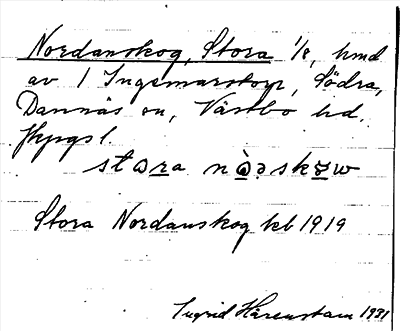 Nordanskog, Stora 1/8, hmd
av 1 Ingemarstorp, Södra,
Dannäs sn, Västbo hd.
Jkpgs l.
Stora Nordanskog kbl 1919
Ingrid Härenstam 1931